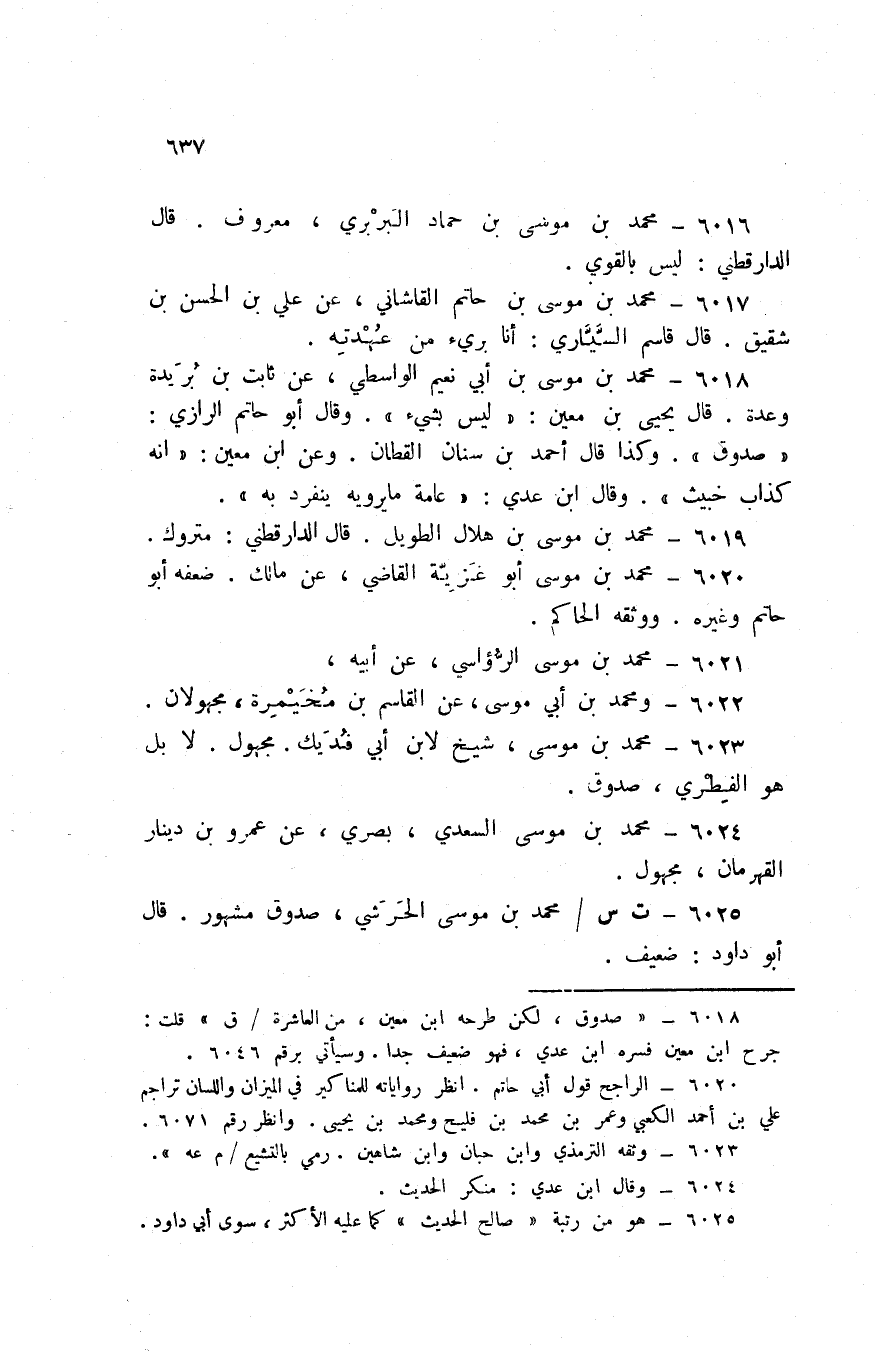 ٦٣٧
٦٠١٦ – محمد بن موسى بن حماد البَربْري ، معروف . قال
الدارقطني : ليس بالقوي .
٦٠١٧ – محمد بن موسى بن حاتم القاشاني ، عن علي بن الحسن بن
شقيق . قال قاسم السيَّاري : أنا بريء من عُهْدتِه .
٦٠١٨ – محمد بن موسى بن أبي نعيم الواسطي ، عن ثابت بن بُريَدة
وعدة . قال يحيى بن معين : « ليس بشيء » . وقال أبو حاتم الرازي :
« صدوق » . وكذا قال أحمد بن سنان القطان . وعن ابن معين : « انه
كذاب خبيث » . وقال ابن عدي : « عامة مايرويه ينفرد به » .
٦٠١٩ – محمد بن موسى بن هلال الطويل . قال الدارقطني : متروك .
٦٠٢٠ – محمد بن موسى أبو غَزِيّة القاضي ، عن مالك . ضعفه أبو
حاتم وغيره . ووثقه الحاكم .
٦٠٢١ – محمد بن موسى الرُّؤاسي ، عن أبيه ،
٦٠٢٢ – ومحمد بن أبي موسى ، عن القاسم بن مُخَيْمِرة ، مجهولان .
٦٠٢٣ – محمد بن موسى ، شيخ لابن أبي فُدَيك . مجهول . لا بل
هو الفِطْري ، صدوق .
٦٠٢٤ – محمد بن موسى السعدي ، بصري ، عن عمرو بن دينار
القهرمان ، مجهول .
٦٠٢٥ – ت س / محمد بن موسى الحَرَشي ، صدوق مشهور . قال
أبو داود : ضعيف .
٦٠١٨ – « صدوق ، لكن طرحه ابن معين ، من العاشرة / ق » قلت :
جرح ابن معين فسره ابن عدي ، فهو ضعيف جدا . وسيأتي برقم ٦٠٤٦ .
٦٠٢٠ – الراجح قول أبي حاتم . انظر رواياته للمناكير في الميزان واللسان تراجم
علي بن أحمد الكعبي وعمر بن محمد بن فليح ومحمد بن يحيى . وانظر رقم ٦٠٧١ .
٦٠٢٣ – وثقه الترمذي وابن حبان وابن شاهين . رمي بالتشيع / م عه » .
٦٠٢٤ – وقال ابن عدي : منكر الحديث .
٦٠٢٥ – هو من رتبة « صالح الحديث » كما عليه الأكثر ، سوى أبي داود .